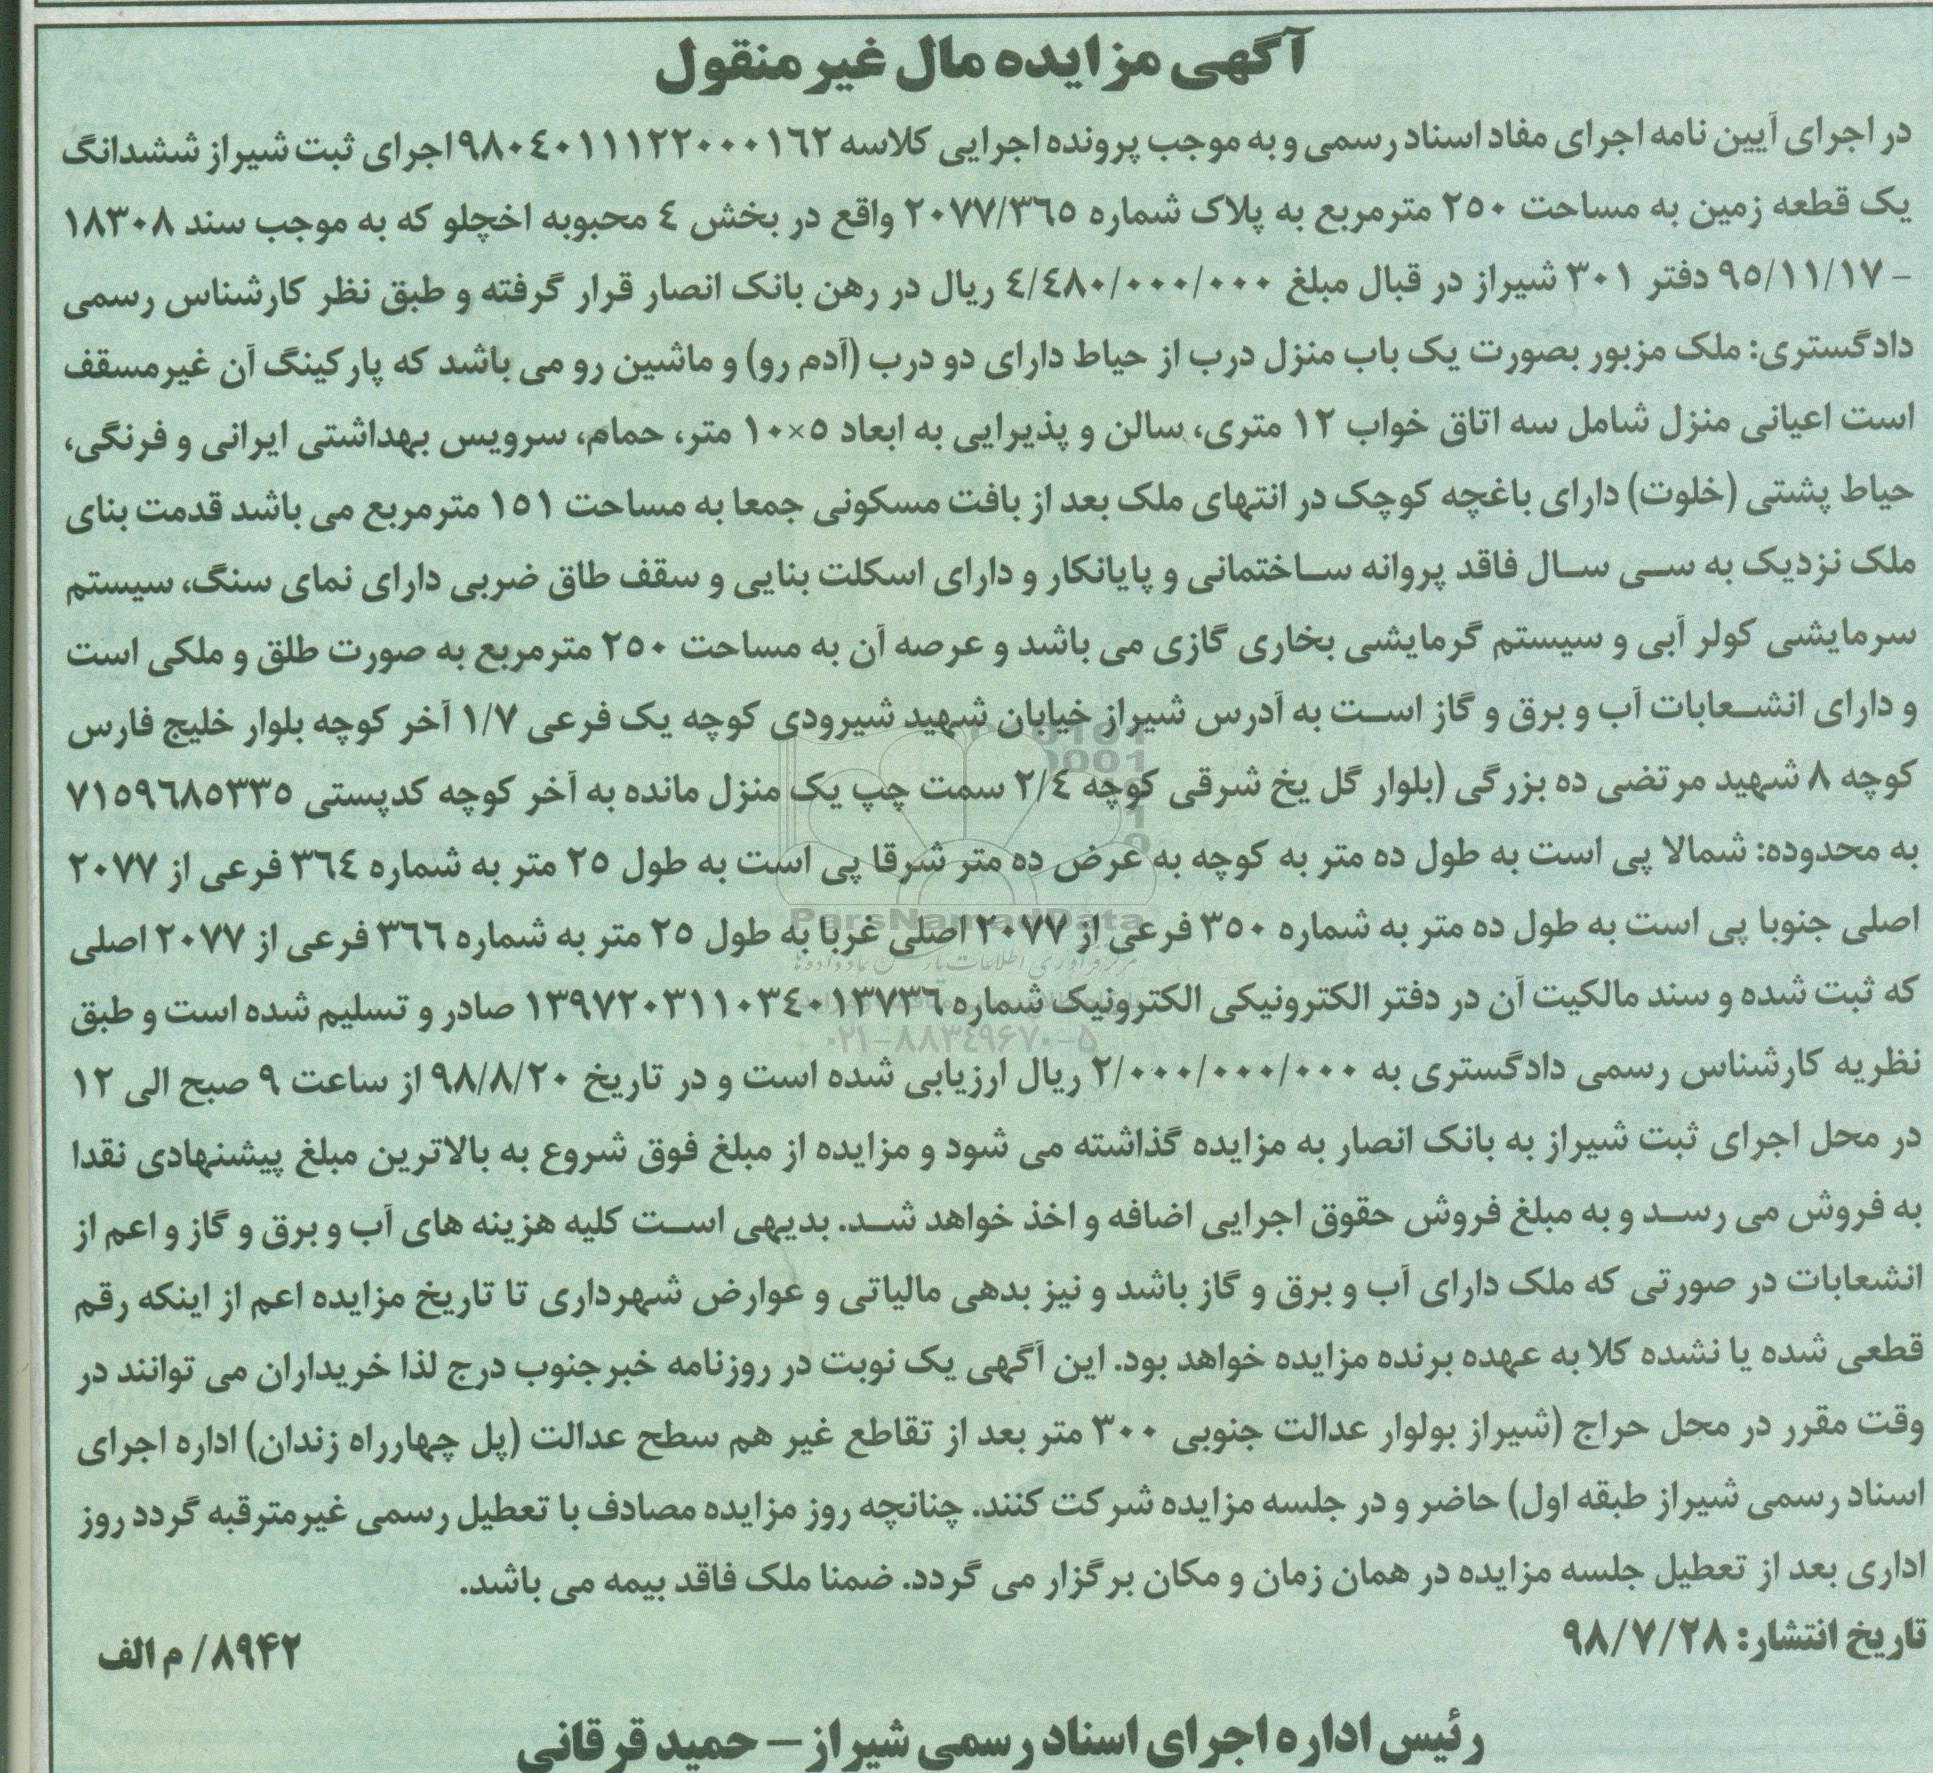 آگهی مزایده مال غیر منقول
در اجرای آیین نامه اجرای مفاد اسناد رسمی و به موجب پرونده اجرایی کلاسه ۹۸۰٤۰۱۱۱۲۲۰۰۰۱٦۲ اجرای ثبت شیراز ششدانگ
یک قطعه زمین به مساحت ۲٥۰ مترمربع به پلاک شماره ۲۰۷۷/۳٦٥ واقع در بخش ٤ محبوبه اخچلو که به موجب سند ۱۸۳۰۸
- ۹٥/۱۱/۱۷ دفتر ۳۰۱ شیراز در قبال مبلغ ٤/٤۸۰/۰۰۰/۰۰۰ ریال در رهن بانک انصار قرار گرفته و طبق نظر کارشناس رسمی
دادگستری: ملک مزبور بصورت یک باب منزل درب از حیاط دارای دو درب (آدم رو) و ماشین رو می باشد که پارکینگ آن غیرمسقف
است اعیانی منزل شامل سه اتاق خواب ۱۲ متری، سالن و پذیرایی به ابعاد ٥×۱۰ متر، حمام، سرویس بهداشتی ایرانی و فرنگی،
حیاط پشتی (خلوت) دارای باغچه کوچک در انتهای ملک بعد از بافت مسکونی جمعا به مساحت ۱٥۱ مترمربع می باشد قدمت بنای
ملک نزدیک به سی سال فاقد پروانه ساختمانی و پایانکار و دارای اسکلت بنایی و سقف طاق ضربی دارای نمای سنگ، سیستم
سرمایشی کولر آبی و سیستم گرمایشی بخاری گازی می باشد و عرصه آن به مساحت ۲٥۰ مترمربع به صورت طلق و ملکی است
و دارای انشعابات آب و برق و گاز است به آدرس شیراز خیابان شهید شیرودی کوچه یک فرعی ۱/۷ آخر کوچه بلوار خلیج فارس
کوچه ۸ شهید مرتضی ده بزرگی (بلوار گل یخ شرقی کوچه ۲/٤ سمت چپ یک منزل مانده به آخر کوچه کدپستی ۷۱٥۹٦۸٥۳۳٥
به محدوده: شمالا پی است به طول ده متر به کوچه به عرض ده متر شرقا پی است به طول ۲٥ متر به شماره ۳٦٤ فرعی از ۲۰۷۷
اصلی جنوبا پی است به طول ده متر به شماره ۳٥۰ فرعی از ۲۰۷۷ اصلی غربا به طول ۲٥ متر به شماره ۳٦٦ فرعی از ۲۰۷۷ اصلی
که ثبت شده و سند مالکیت آن در دفتر الکترونیکی الکترونیک شماره ۱۳۹۷۲۰۳۱۱۰۳٤۰۱۳۷۳٦ صادر و تسلیم شده است و طبق
نظریه کارشناس رسمی دادگستری به ۲/۰۰۰/۰۰۰/۰۰۰ ریال ارزیابی شده است و در تاریخ ۹۸/۸/۲۰ از ساعت ۹ صبح الی ۱۲
در محل اجرای ثبت شیراز به بانک انصار به مزایده گذاشته می شود و مزایده از مبلغ فوق شروع به بالاترین مبلغ پیشنهادی نقدا
به فروش می رسد و به مبلغ فروش حقوق اجرایی اضافه و اخذ خواهد شد. بدیهی است کلیه هزینه های آب و برق و گاز و اعم از
انشعابات در صورتی که ملک دارای آب و برق و گاز باشد و نیز بدهی مالیاتی و عوارض شهرداری تا تاریخ مزایده اعم از اینکه رقم
قطعی شده یا نشده کلا به عهده برنده مزایده خواهد بود. این آگهی یک نوبت در روزنامه خبرجنوب درج لذا خریداران می توانند در
وقت مقرر در محل حراج (شیراز بولوار عدالت جنوبی ۳۰۰ متر بعد از تقاطع غیر هم سطح عدالت (پل چهارراه زندان) اداره اجرای
اسناد رسمی شیراز طبقه اول) حاضر و در جلسه مزایده شرکت کنند. چنانچه روز مزایده مصادف با تعطیل رسمی غیرمترقبه گردد روز
اداری بعد از تعطیل جلسه مزایده در همان زمان و مکان برگزار می گردد. ضمنا ملک فاقد بیمه می باشد.
تاریخ انتشار: ۹۸/۷/۲۸
۸۹۴۲/ م الف
رئیس اداره اجرای اسناد رسمی شیراز – حمید قرقانی
ParsNamadData
۰۲۱-۸۸۳۴۹۶۷۰-۵